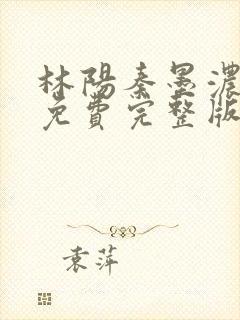 林陽秦墨濃
免費完整版
袁萍